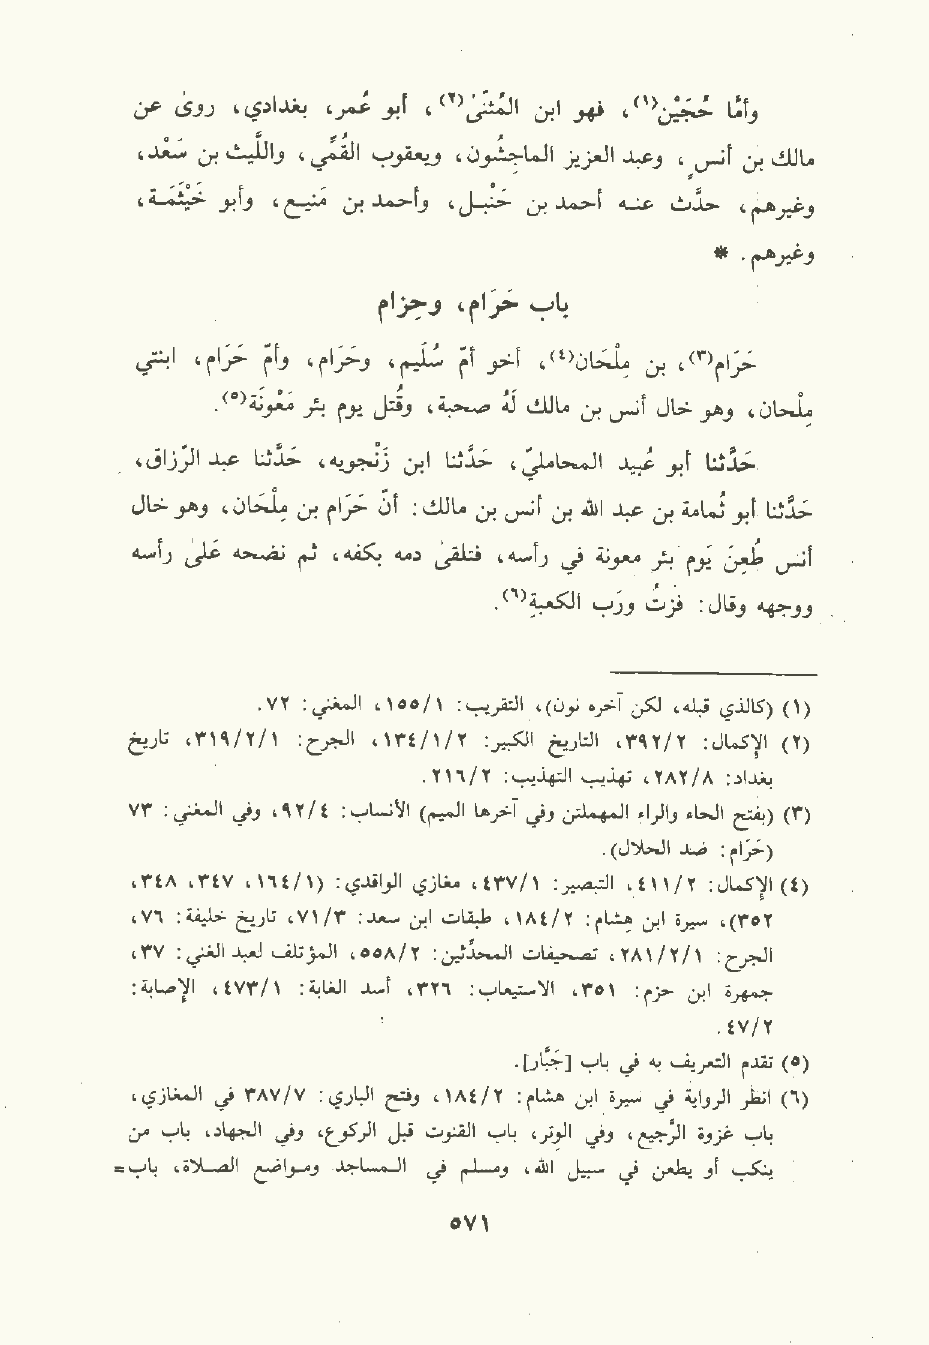 وأمّا حُجَيْن(١)، فهو ابن المُثنّىٰ(٢)، أبو عُمر، بغدادي، روىٰ عن
مالك بن أنس، وعبد العزيز الماجِشُون، ويعقوب القُمّي، واللّيث بن سَعْد،
وغيرهم، حدّث عنه أحمد بن حَنْبل، وأحمد بن مَنيع، وأبو خَيْثَمَة،
وغيرهم. *
باب حَرَام، وحِزام
حَرَام(٣)، بن مِلْحَان(٤)، أخو أمّ سُلَيم، وحَرَام، وأمّ حَرَام، ابنتي
مِلْحان، وهو خال أنس بن مالك لَهُ صحبة، وقُتل يوم بئر مَعْونَة(٥).
حَدَّثنا أبو عُبيد المحامليّ، حَدّثنا ابن زَنْجويه، حَدّثنا عبد الرّزاق،
حَدّثنا أبو ثُمامة بن عبد الله بن أنس بن مالك: أنّ حَرَام بن مِلْحَان، وهو خال
أنس طُعِنَ يَوم بئر معونة في رأسه، فتلقىٰ دمه بكفه، ثم نضحه عَلىٰ رأسه
ووجهه وقال: فُزتُ ورَب الكعبةِ(٦).
(١) (كالذي قبله، لكن آخره نون)، التقريب: ١٥٥/١، المغني: ٧٢.
(٢) الإكمال: ٣٩٢/٢، التاريخ الكبير: ١٣٤/١/٢، الجرح: ٣١٩/٢/١، تاريخ
بغداد: ٢٨٢/٨، تهذيب التهذيب: ٢١٦/٢.
(٣) (بفتح الحاء والراء المهملتن وفي آخرها الميم) الأنساب: ٩٢/٤، وفي المغني: ٧٣
(حَرَام: ضد الحلال).
(٤) الإكمال: ٤١١/٢، التبصير: ٤٣٧/١، مغازي الواقدي: (١٦٤/١، ٣٤٧، ٣٤٨،
٣٥٢)، سيرة ابن هِشام: ١٨٤/٢، طبقات ابن سعد: ٧١/٣، تاريخ خليفة: ٧٦،
الجرح: ٢٨١/٢/١، تصحيفات المحدّثين: ٥٥٨/٢، المؤتلف لعبد الغني: ٣٧،
جمهرة ابن حزم: ٣٥١، الاستيعاب: ٣٢٦، أسد الغابة: ٤٧٣/١، الإصابة:
٤٧/٢.
(٥) تقدم التعريف به في باب [جَبَّار].
(٦) انظر الرواية في سيرة ابن هشام: ١٨٤/٢، وفتح الباري: ٣٨٧/٧ في المغازي،
باب غزوة الرّجيع، وفي الوِتر، باب القنوت قبل الركوع، وفي الجهاد، باب من
ينكب أو يطعن في سبيل الله، ومسلم في المساجد ومواضع الصلاة، باب=
٥٧١